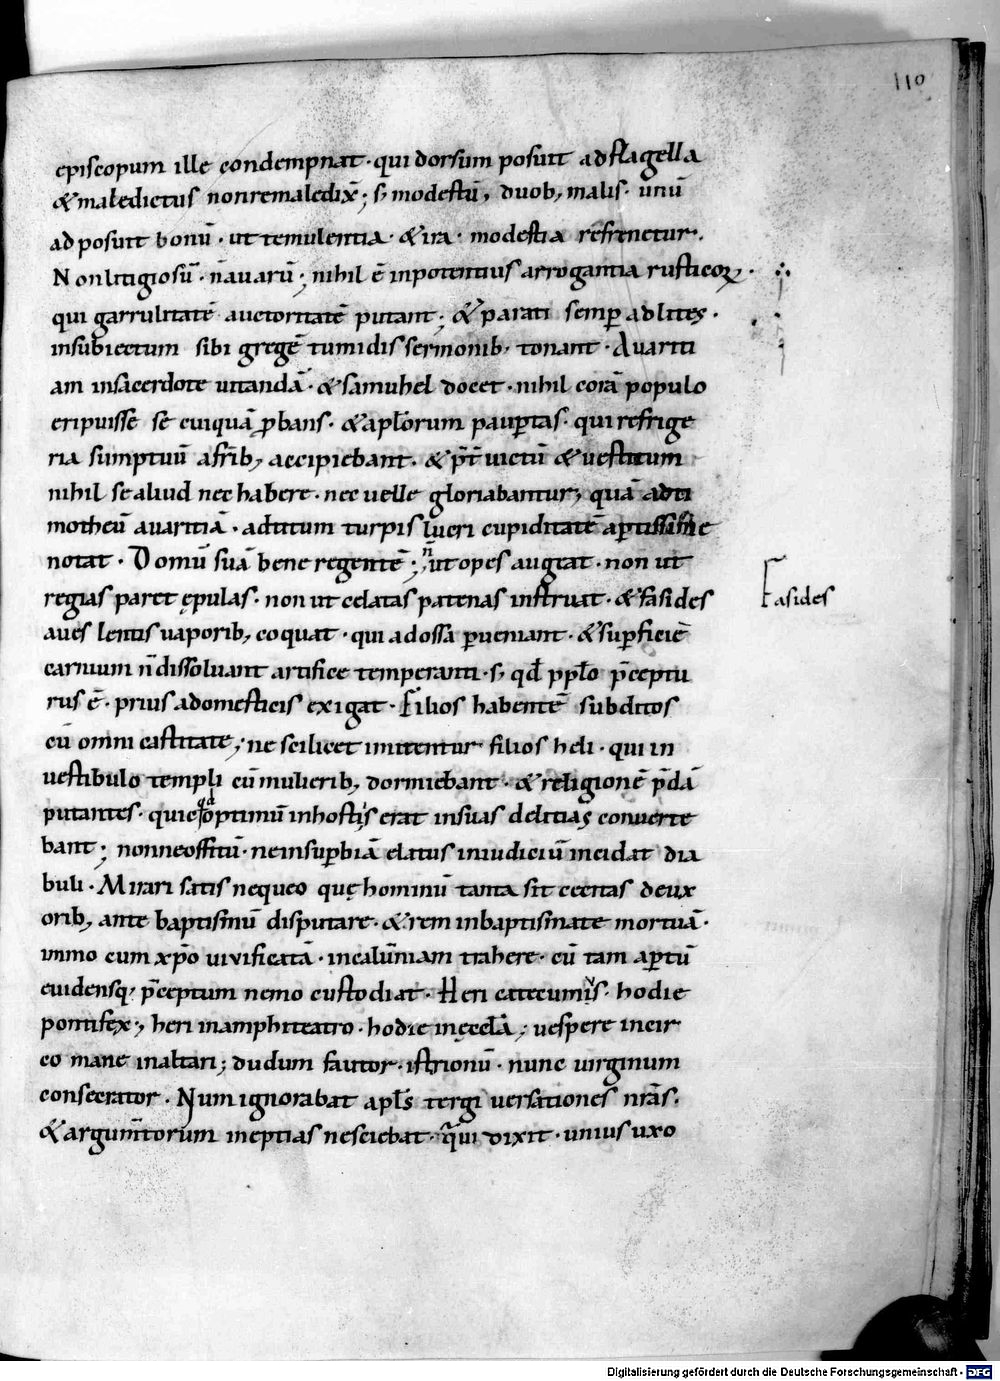 110
episcopum ille condempnat · qui dorsum posuit ad flagella
& maledictus non remaledix̄ ; s; modestū , duob; malis · unū
ad posuit bonū · ut temulentia · & ira · modestia refrenetur .
Non litigiosū · n̄ auarū ; nihil ē inpotentius arrogantia rusticoꝝ ·
qui garrulitatē auctoritatē putant ; & parati semꝑ ad lites ·
insubiectum sibi gregē tumidis sermonib; tonant · Auariti
am insacerdote uitandā · & samuhel docet · nihil corā populo
eripuisse se cuiquā ꝓbans · & apl̄orum pauꝑtas · qui refrige
ria sumptuū afr̄ib; accipiebant · & p̄t uictū & uestitum
nihil se aliud nec habere · nec uelle gloriabantur ; quā ad ti
motheū auaritiā · ad titum turpis lucri cupiditatē aꝑtissime
notat · Domū suā bene regentē ; n̄ ut opes augeat · non ut
regias paret ępulas · non ut celatas patenas instruat · & fasides
Fasides
aues lentis uaporib; coquat · qui ad ossa ꝑueniant · & suꝑficiē
carnium n̄ dissoluant artifice temperanti · s; qd̄ ppl̄o p̄ceptu
rus ē · prius adomesticis exigat · Filios habentē subditos
cū omni castitate ; ne scilicet imitentur filios heli · qui in
uestibulo templi cū mulierib; dormiebant · & religionē p̄dā
putantes · quicqd optimū inhostiis erat insuas delitias conuerte
bant ; non neoffitū · ne insuꝑbiā elatus iniudiciū incidat dia
buli · Mirari satis nequeo quę hominū tanta sit cecitas de ux
orib; ante baptismū disputare · & rem inbaptismate mortuā ·
immo cum xp̄o uiuificatā · incalūniam trahere · cū tam aꝑtū
euidensq; p̄ceptum nemo custodiat · Heri catecumin̄s · hodie
pontifex ; heri inamphiteatro · hodie inęcclā ; uespere incir
co mane inaltari ; dudum fautor · istrionū · nunc uirginum
consecrator · Num ignorabat apl̄s tergiuersationes nr̄as ·
& argum̄torum ineptias nesciebat · qui dixit · unius uxo
Digitalisierung gefördert durch die Deutsche Forschungsgemeinschaft - DFG